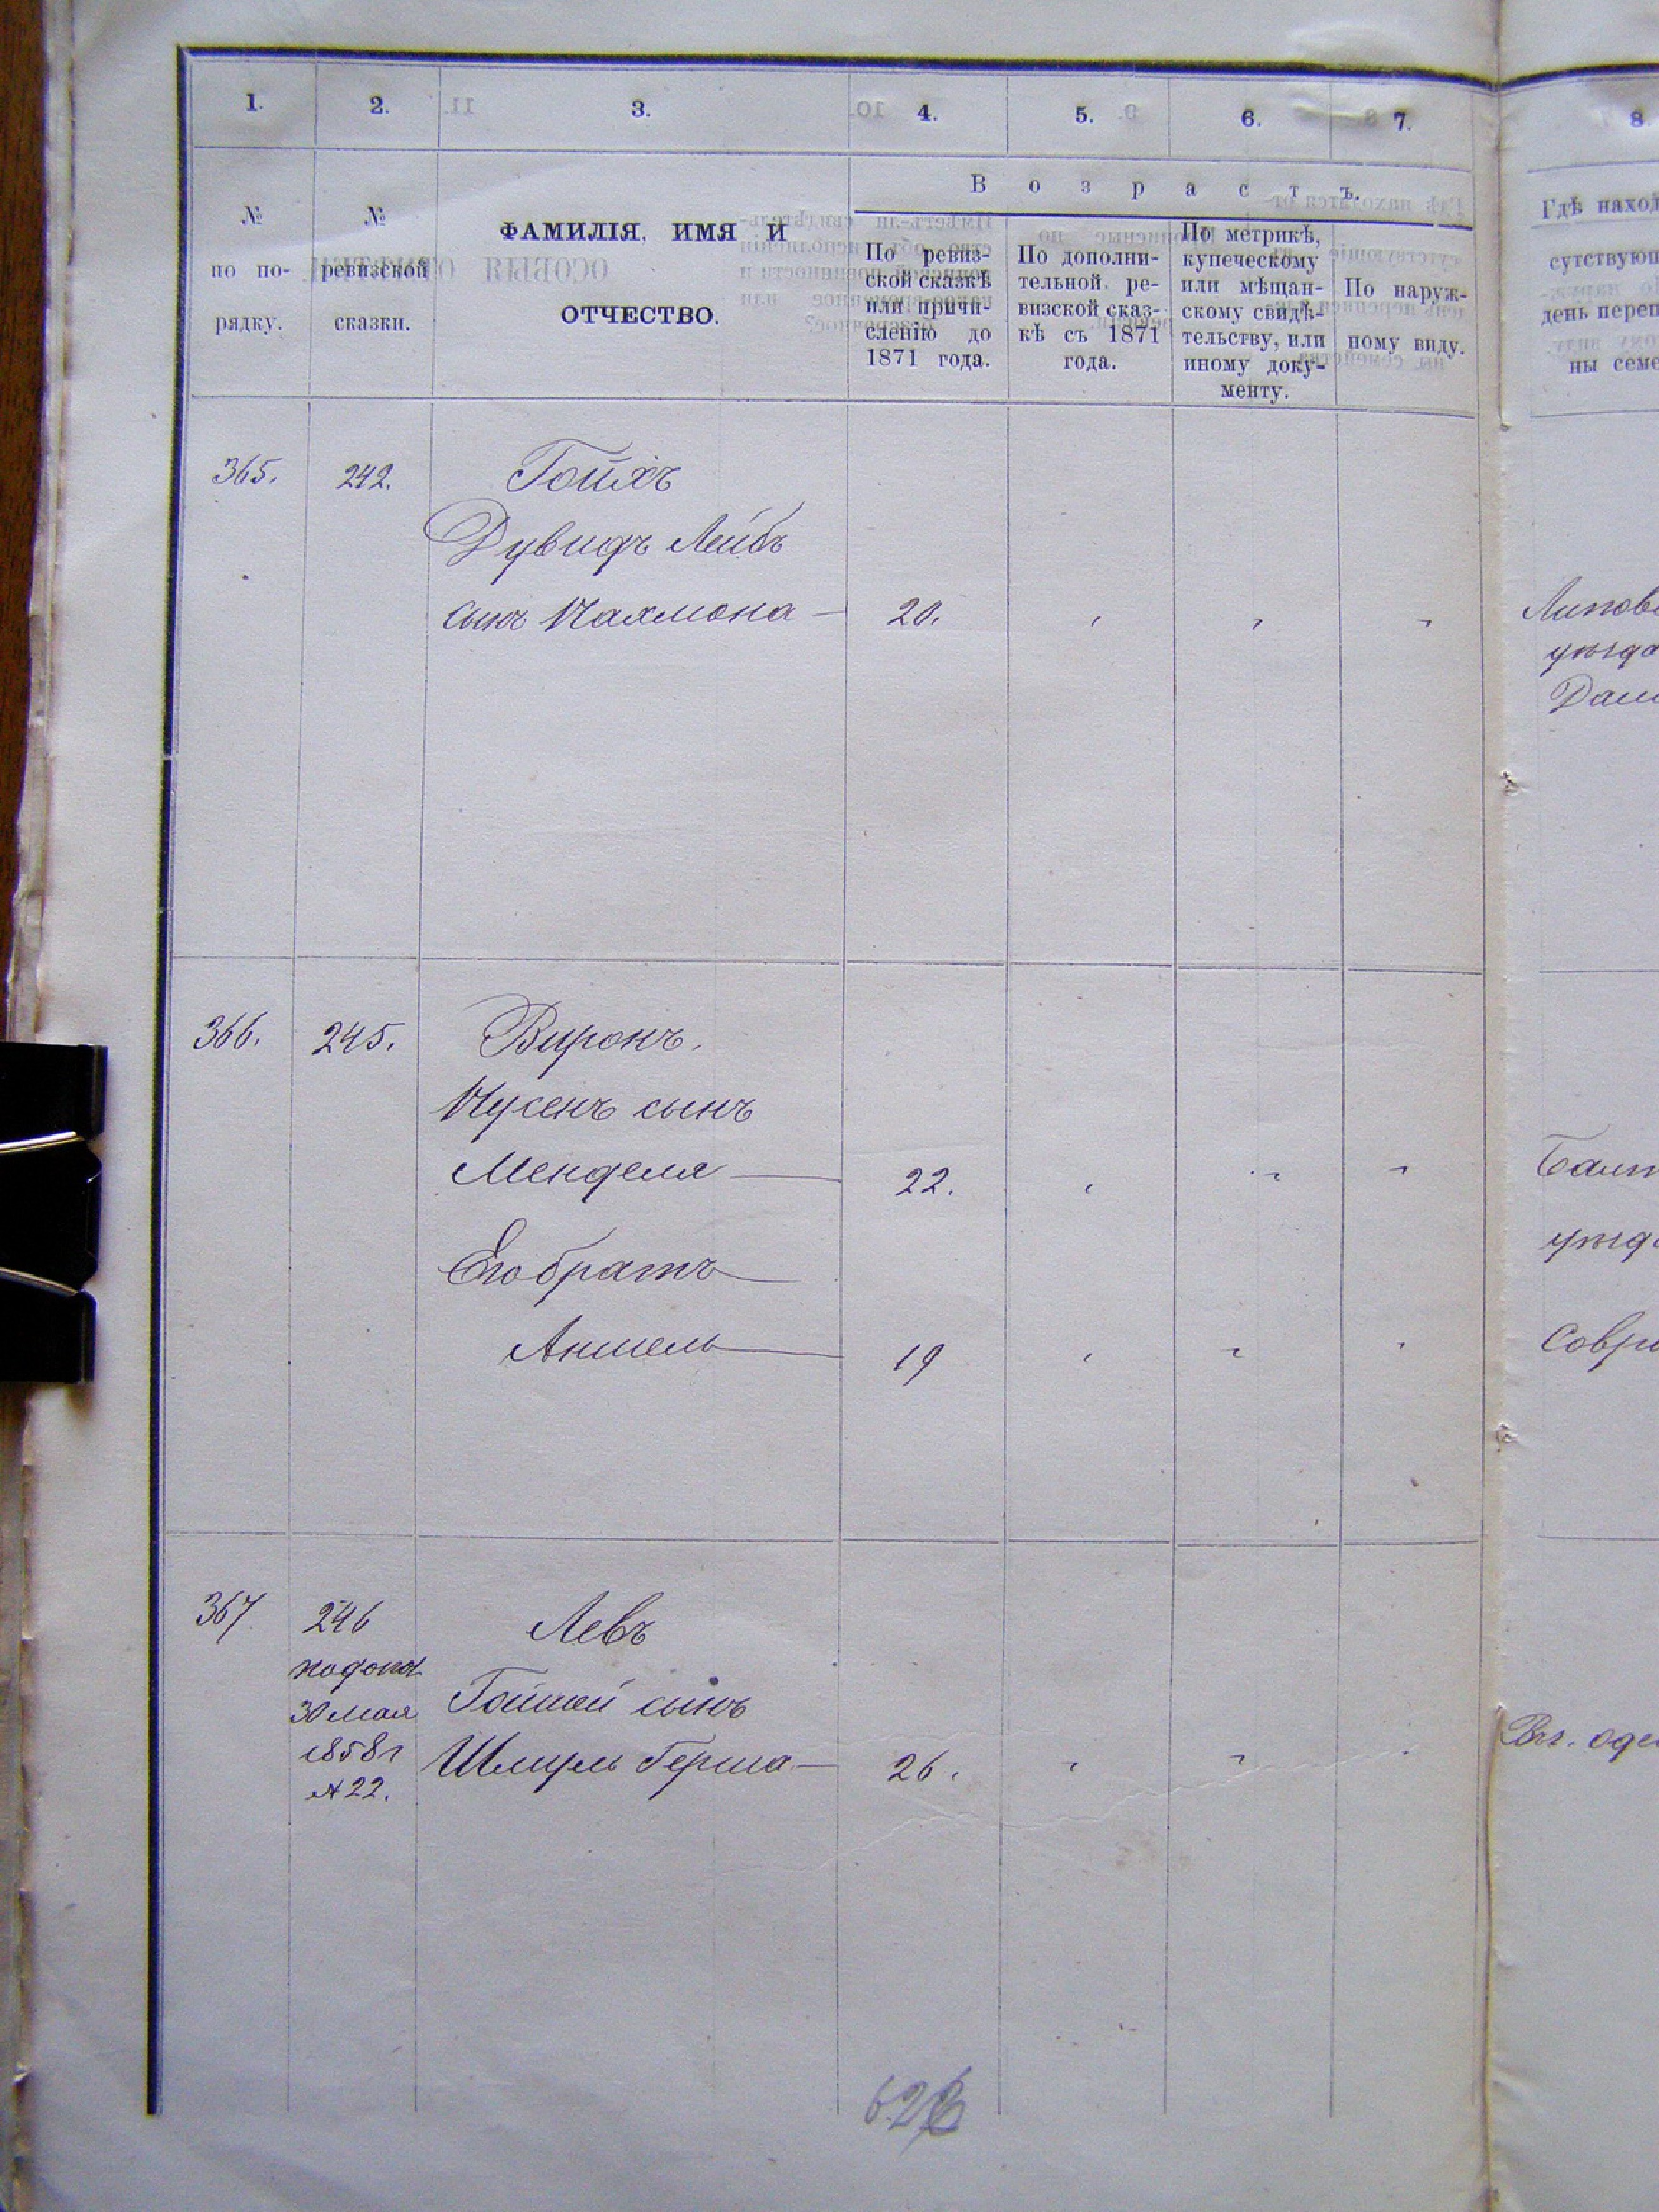 1. 2. 3. 4. 5. 6. 7. 8
Возрастъ.
№ по по- рядку.
№ ревизской сказки.
ФАМИЛІЯ, ИМЯ И
ОТЧЕСТВО.
По ревиз-
ской сказкѣ
или причи-
сленію до
1871 года.
По дополни-
тельной ре-
визской сказ-
кѣ съ 1871
года.
По метрикѣ,
купеческому
или мѣщан-
скому свидѣ-
тельству, или
иному доку-
менту.
По наруж-
ному виду.
Гдѣ наход
сутствующ
день переп
ны семе
365. 242. Гойхъ
Дувидъ Лейбъ
сынъ Нахмона 20.
Липов
уѣзда
366. 245. Виронъ.
Нусенъ сынъ
Менделя 22.
Балт
уѣзд
Его братъ
Аншель 19
Совра
367 246 Левъ
30 Мая
1858 г
№ 22.
сынъ
Шмуль Герша 26.